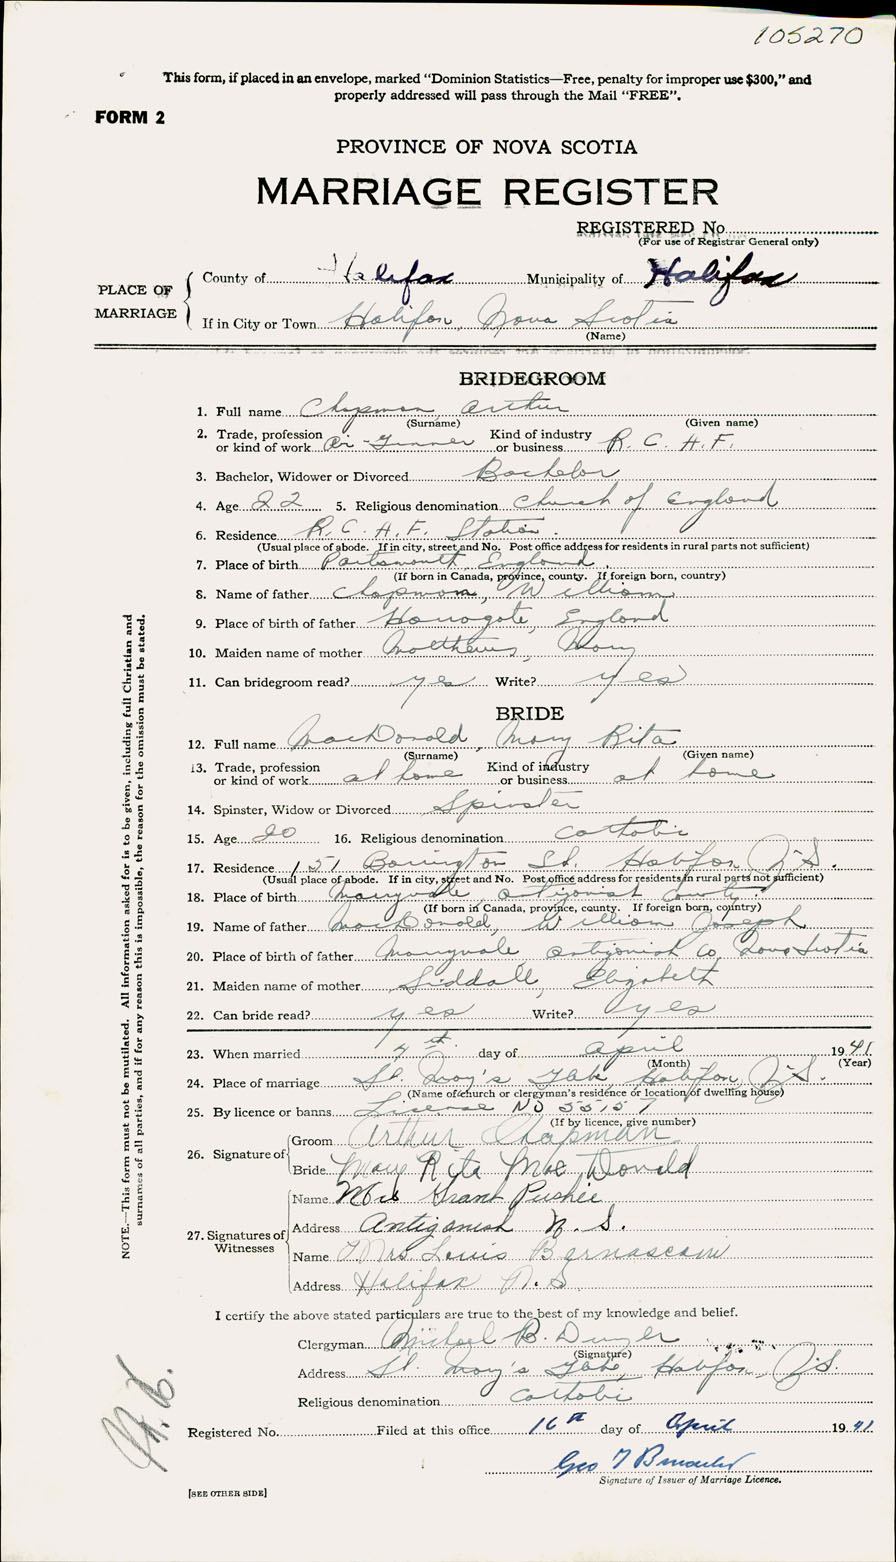 105270
This form, if placed in an envelope, marked "Dominion Statistics—Free, penalty for improper use $300," and
properly addressed will pass through the Mail "FREE".
FORM 2
PROVINCE OF NOVA SCOTIA
MARRIAGE REGISTER
REGISTERED No.
(For use of Registrar General only)
PLACE OF MARRIAGE
County of Halifax Municipality of Halifax
If in City or Town Halifax, Nova Scotia
(Name)
BRIDEGROOM
1. Full name Chapman, Arthur
(Surname) (Given name)
2. Trade, profession or kind of work Air-Gunner Kind of industry or business R.C.A.F.
3. Bachelor, Widower or Divorced Bachelor
4. Age 22 5. Religious denomination Church of England
6. Residence R.C.A.F. Station.
(Usual place of abode. If in city, street and No. Post office address for residents in rural parts not sufficient)
7. Place of birth Portsmouth, England.
(If born in Canada, province, county. If foreign born, country)
8. Name of father Chapman, William
9. Place of birth of father Harrogate, England
10. Maiden name of mother Matthews, Mary
11. Can bridegroom read? yes Write? yes
BRIDE
12. Full name MacDonald, Mary Rita
(Surname) (Given name)
13. Trade, profession or kind of work at home Kind of industry or business at home
14. Spinster, Widow or Divorced Spinster
15. Age 20 16. Religious denomination Catholic
17. Residence 151 Barrington St. Halifax, N.S.
(Usual place of abode. If in city, street and No. Post office address for residents in rural parts not sufficient)
18. Place of birth Maryvale Antigonish County.
(If born in Canada, province, county. If foreign born, country)
19. Name of father MacDonald, William Joseph
20. Place of birth of father Maryvale, Antigonish Co, Nova Scotia
21. Maiden name of mother Siddall, Elizabeth
22. Can bride read? yes Write? yes
23. When married 4th day of April 1941
(Month) (Year)
24. Place of marriage St. Mary's Glebe, Halifax, N.S.
(Name of church or clergyman's residence or location of dwelling house)
25. By licence or banns License No 55157
(If by licence, give number)
26. Signature of
Groom Arthur Chapman
Bride Mary Rita Mac Donald
27. Signatures of Witnesses
Name Mrs Grant Pushie
Address Antigonish N.S.
Name Mrs Louis
Address Halifax N.S.
I certify the above stated particulars are true to the best of my knowledge and belief.
Clergyman Michael B. Dwyer
(Signature)
Address St. Mary's Glebe, Halifax, N.S.
Religious denomination Catholic
Registered No. Filed at this office 16th day of April 1941
Geo
Signature of Issuer of Marriage Licence.
[SEE OTHER SIDE]
NOTE.—This form must not be mutilated. All information asked for is to be given, including full Christian and
surnames of all parties, and if for any reason this is impossible, the reason for the omission must be stated.